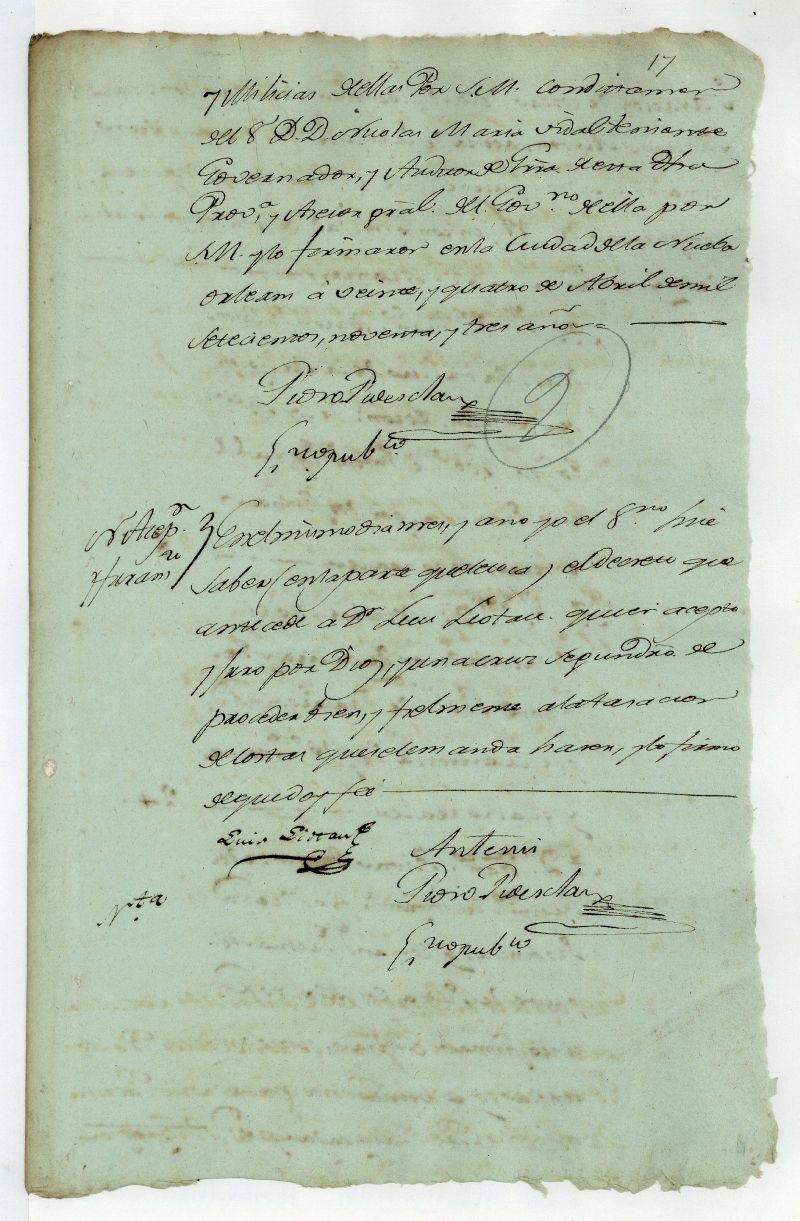 17
y Milicias de ellas Por S.M. con dictamen
del S.r D.n Nicolas Maria Vidal teniente
Governador, y Auditor de Grra. de esta dha
Prov.a y Asesor gral. del Gov.no de ella por
S.M. y lo firmaron en la Ciudad de la Nueba
Orleans à veinte, y quatro de Abril de mil
setecientos, noventa, y tres años =
Pedro Pedesclaux
Es.no pub.co
2
N. Acep.n
y Juram.to
En el mismo dia mes, y año yo el Es.no hice
saber (en la parte que le toca) el Decreto que
antecede a D.n Luis Liotau. quien acepto
y juro por Dios, y una cruz segun dro. de
proceder bien, y fielmente a la tasacion
de costas que se le manda haser, y lo firmo
de que doy fee
Luis Liotau
Antemi
Pedro Pedesclaux
Es.no pub.co
N.ta